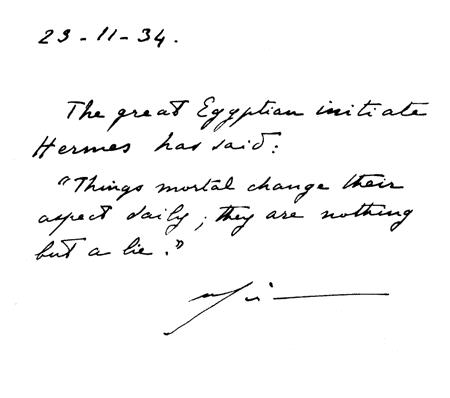 23-11-34.
The great Egyptian initiate
Hermes has said:
"Things mortal change their
aspect daily; they are nothing
but a lie."